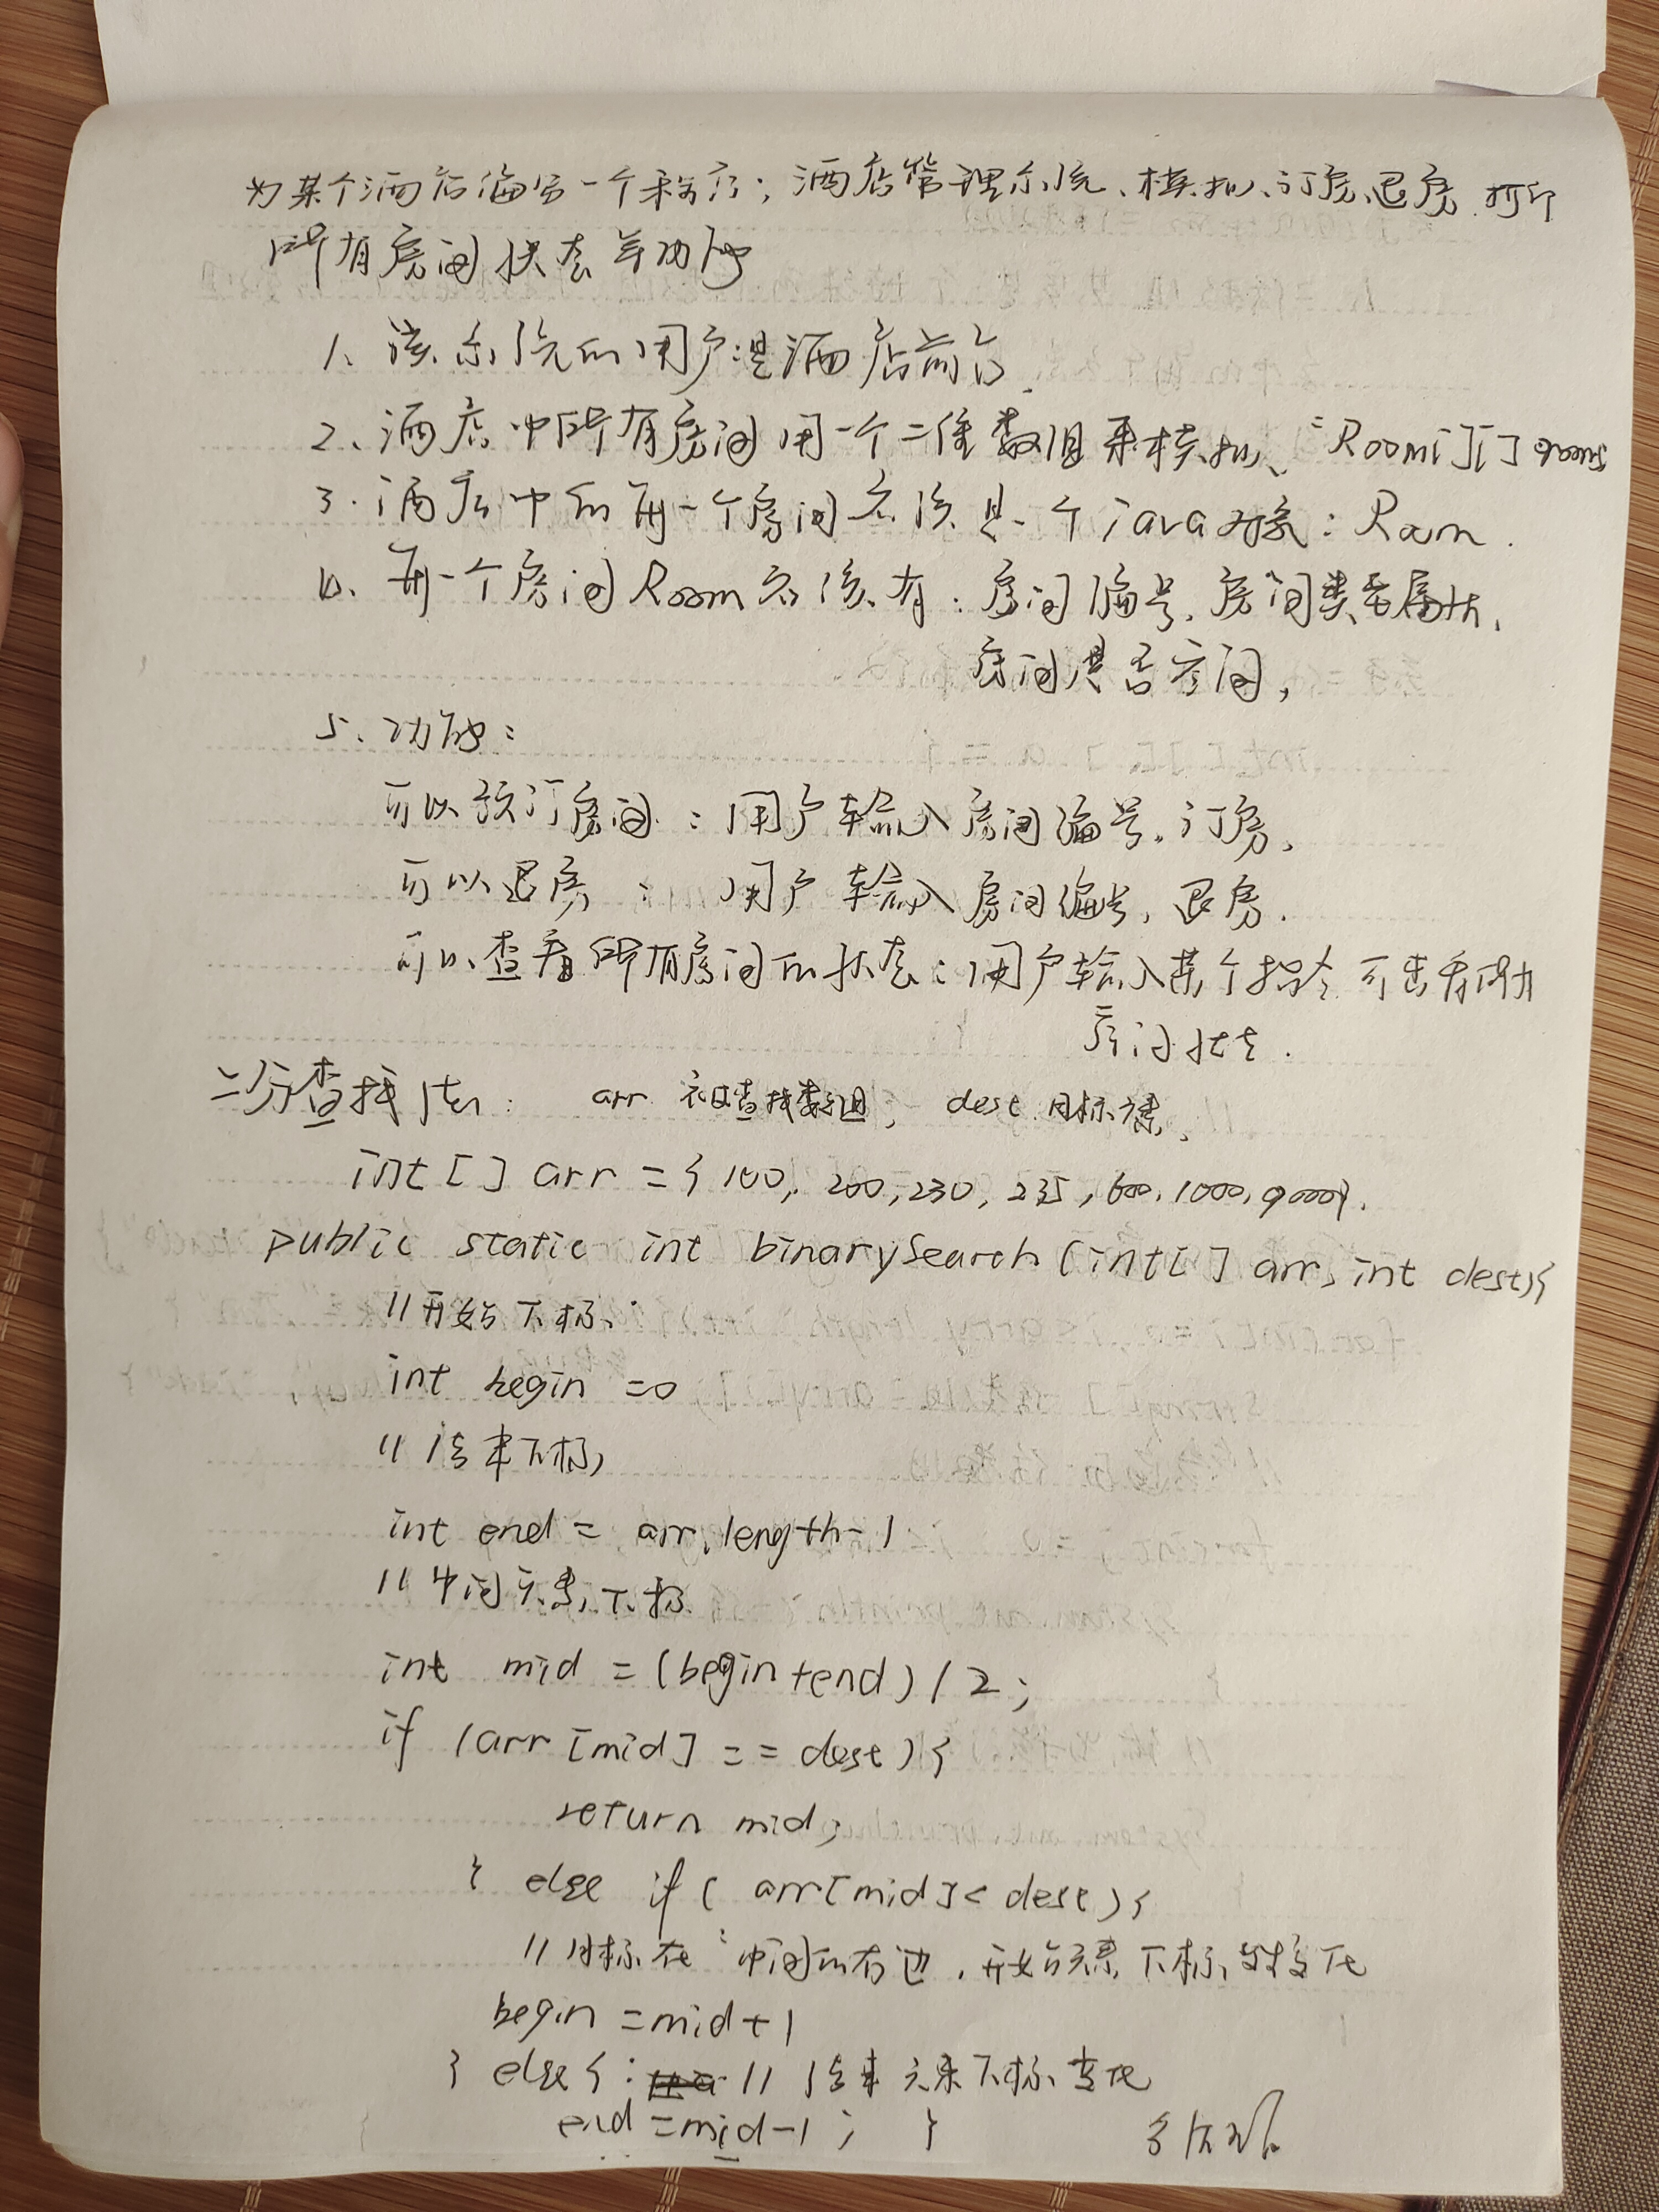 为某个酒店编写一个程序：酒店管理系统、模拟、订房、退房、打印
所有房间状态等功能
1、该系统的用户是酒店前台.
2、酒店中所有房间用一个二维数组来模拟、Room[][] rooms
3、酒店中的每一个房间应该是一个java对象：Room.
4、每一个房间Room应该有：房间编号、房间类型属性、
房间是否空闲，
5、功能：
可以预订房间：用户输入房间编号，订房、
可以退房：用户输入房间编号，退房.
可以查看所有房间的状态：用户输入某个指令可查看所有
房间状态.
二分查找法： arr 被查找数组， dest 目标元素、
int[] arr = { 100, 200, 230, 235, 600, 1000, 9000}.
public static int binarySearch (int[] arr, int dest){
//开始下标：
int begin =0
//结束下标，
int end = arr.length-1
//中间元素下标
int mid = (begin+end) / 2;
if (arr[mid] == dest){
return mid;
} else if( arr[mid]< dest){
//目标在中间的右边，开始元素下标发生变化
begin =mid+1
} else{ : // 结束元素下标变化
end =mid-1; }